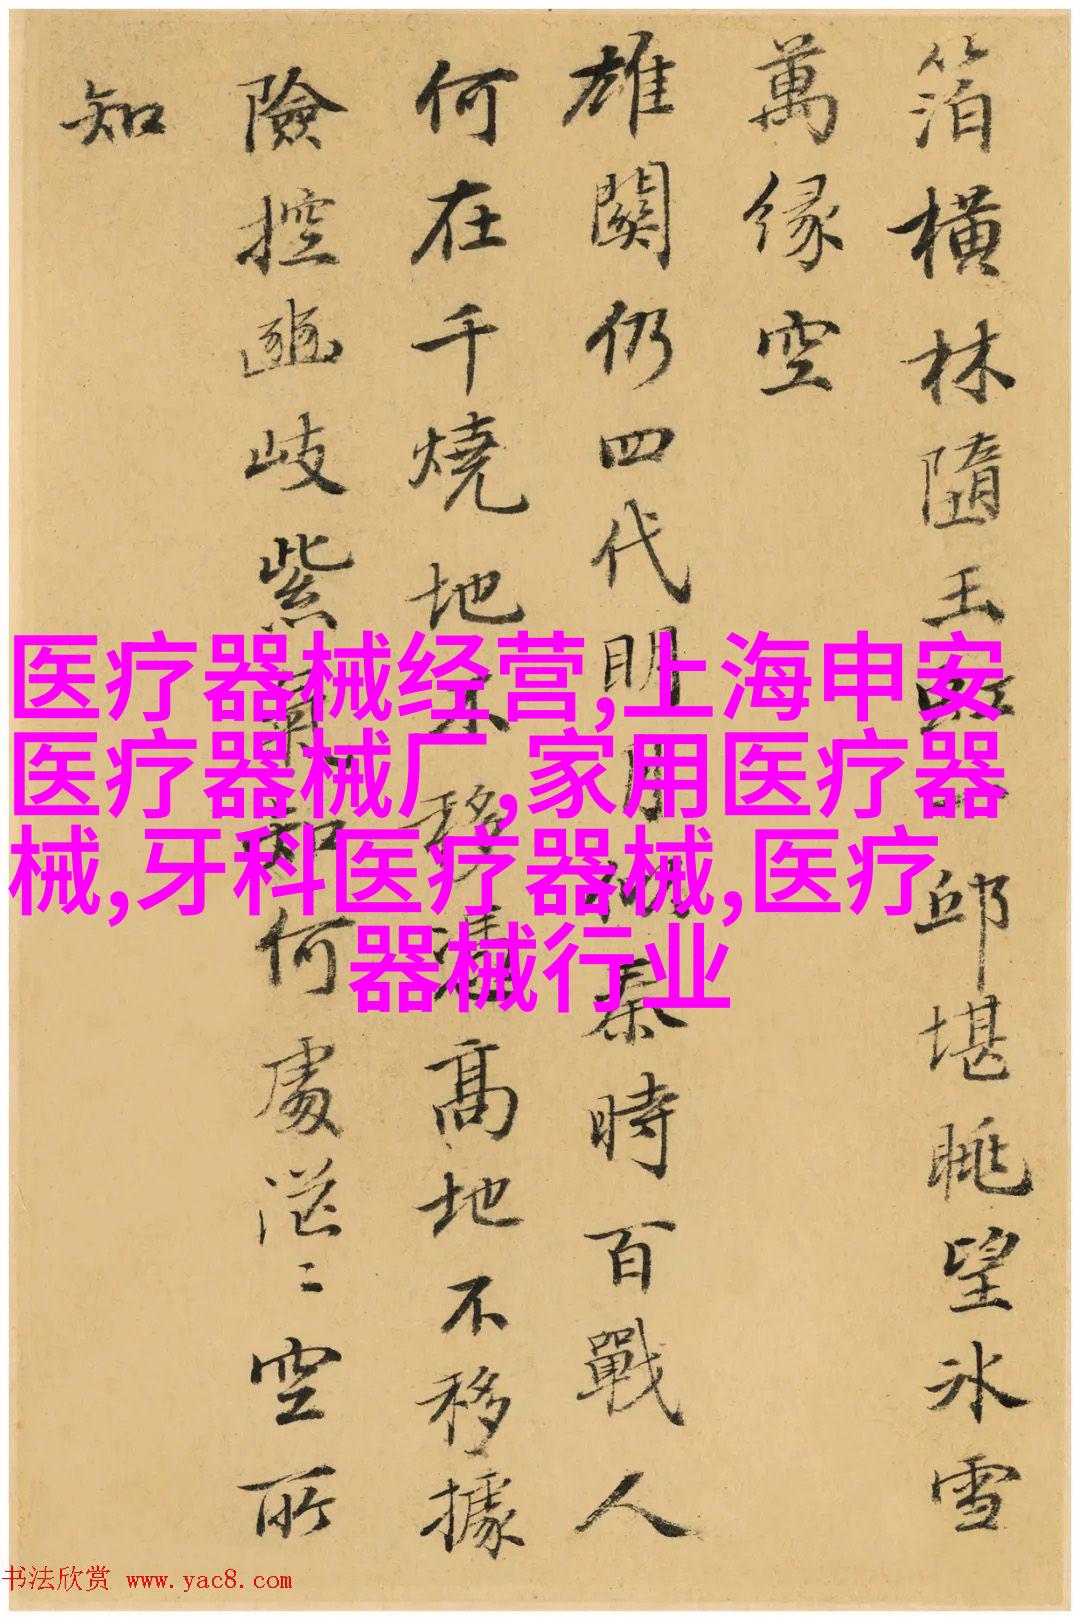 箔橫林隨玉
邱堪眺望冰雪
萬緣空
雄關仍四代明月
秦時百戰人
何在千燒地
移憑高地不移據
險控豳岐紫
知何處茫〻空所
知
医疗器械经营,上海申安
医疗器械厂,家用医疗器
械,牙科医疗器械,医疗
器械行业
书法欣赏 www.yac8.com